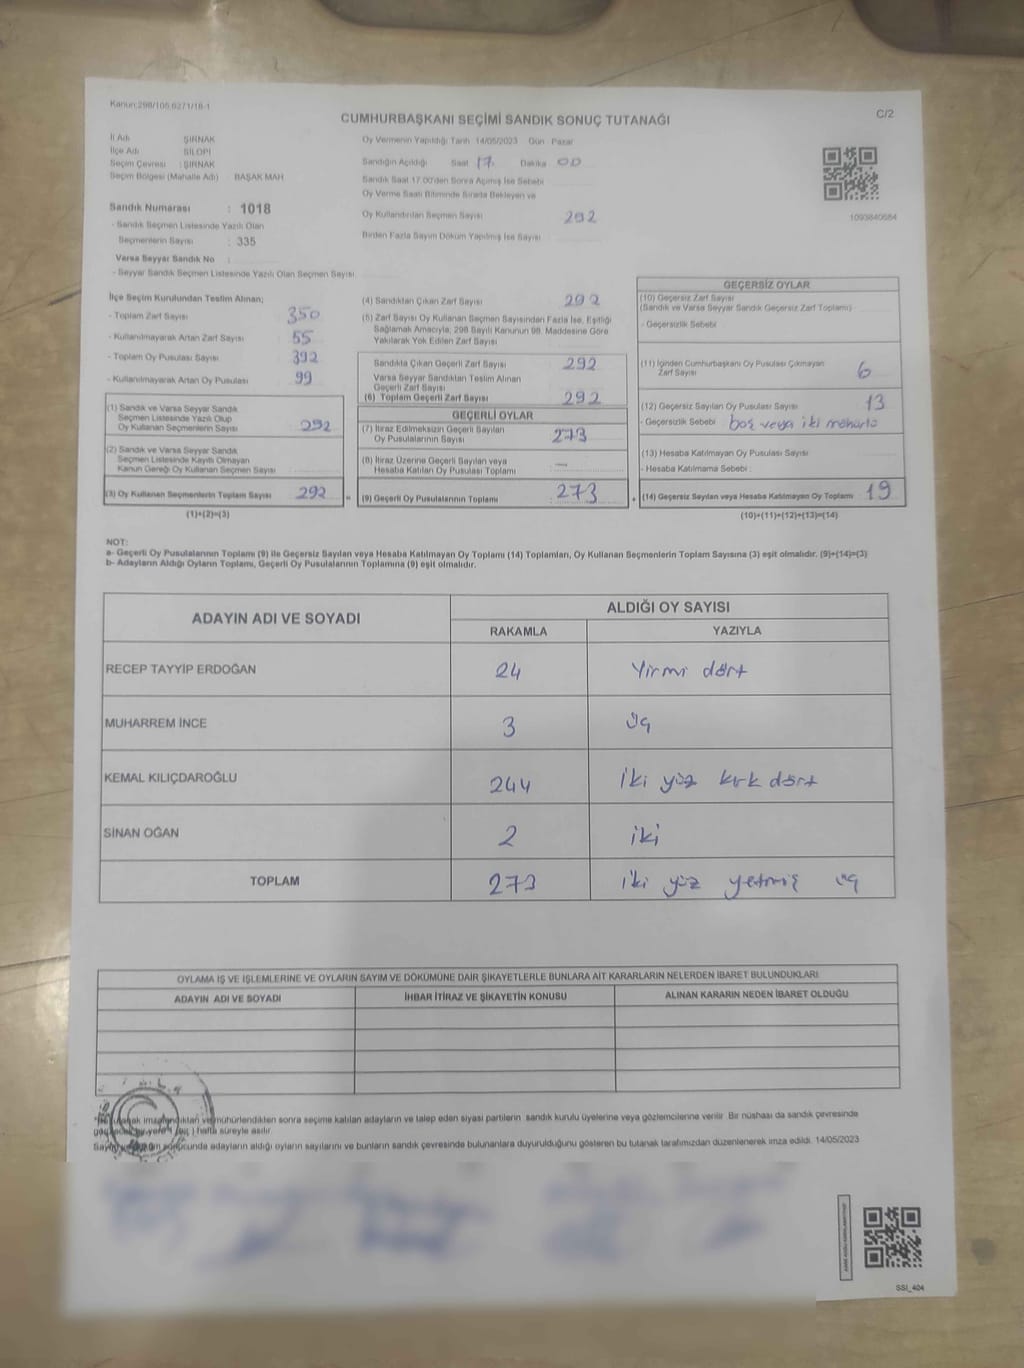 Kanun:298/105,6271/18-1
CUMHURBAŞKANI SEÇİMİ SANDIK SONUÇ TUTANAĞI
C/2
İl Adı ŞIRNAK
İlçe Adı SİLOPİ
Seçim Çevresi : ŞIRNAK
Seçim Bölgesi (Mahalle Adı) : BAŞAK MAH
Sandık Numarası : 1018
- Sandık Seçmen Listesinde Yazılı Olan
Seçmenlerin Sayısı : 335
Varsa Seyyar Sandık No :
- Seyyar Sandık Seçmen Listesinde Yazılı Olan Seçmen Sayısı
Oy Vermenin Yapıldığı Tarih 14/05/2023 Gün Pazar
Sandığın Açıldığı Saat 17 Dakika 00
Sandık Saat 17.00'den Sonra Açılmış İse Sebebi
Oy Verme Saati Bitiminde Sırada Bekleyen ve
Oy Kullandırılan Seçmen Sayısı 292
Birden Fazla Sayım Döküm Yapılmış İse Sayısı
1093840684
İlçe Seçim Kurulundan Teslim Alınan;
- Toplam Zarf Sayısı 350
- Kullanılmayarak Artan Zarf Sayısı 55
- Toplam Oy Pusulası Sayısı 392
- Kullanılmayarak Artan Oy Pusulası 99
(1) Sandık ve Varsa Seyyar Sandık
Seçmen Listesinde Yazılı Olup
Oy Kullanan Seçmenlerin Sayısı 292
(2) Sandık ve Varsa Seyyar Sandık
Seçmen Listesinde Kayıtlı Olmayan
Kanun Gereği Oy Kullanan Seçmen Sayısı
(3) Oy Kullanan Seçmenlerin Toplam Sayısı 292
(1)+(2)=(3)
(4) Sandıktan Çıkan Zarf Sayısı 292
(5) Zarf Sayısı Oy Kullanan Seçmen Sayısından Fazla İse, Eşitliği
Sağlamak Amacıyla, 298 Sayılı Kanunun 98. Maddesine Göre
Yakılarak Yok Edilen Zarf Sayısı
Sandıkta Çıkan Geçerli Zarf Sayısı 292
Varsa Seyyar Sandıktan Teslim Alınan
Geçerli Zarf Sayısı
(6) Toplam Geçerli Zarf Sayısı 292
GEÇERLİ OYLAR
(7) İtiraz Edilmeksizin Geçerli Sayılan
Oy Pusulalarının Sayısı 273
(8) İtiraz Üzerine Geçerli Sayılan veya
Hesaba Katılan Oy Pusulası Toplamı —
(9) Geçerli Oy Pusulalarının Toplamı 273
GEÇERSİZ OYLAR
(10) Geçersiz Zarf Sayısı
(Sandık ve Varsa Seyyar Sandık Geçersiz Zarf Toplamı)
- Geçersizlik Sebebi
(11) İçinden Cumhurbaşkanı Oy Pusulası Çıkmayan
Zarf Sayısı 6
(12) Geçersiz Sayılan Oy Pusulası Sayısı 13
- Geçersizlik Sebebi boş veya iki mühürlü
(13) Hesaba Katılmayan Oy Pusulası Sayısı
- Hesaba Katılmama Sebebi :
(14) Geçersiz Sayılan veya Hesaba Katılmayan Oy Toplamı 19
(10)+(11)+(12)+(13)=(14)
NOT:
a- Geçerli Oy Pusulalarının Toplamı (9) ile Geçersiz Sayılan veya Hesaba Katılmayan Oy Toplamı (14) Toplamları, Oy Kullanan Seçmenlerin Toplam Sayısına (3) eşit olmalıdır. (9)+(14)=(3)
b- Adayların Aldığı Oyların Toplamı, Geçerli Oy Pusulalarının Toplamına (9) eşit olmalıdır.
ADAYIN ADI VE SOYADI
ALDIĞI OY SAYISI
RAKAMLA YAZIYLA
RECEP TAYYİP ERDOĞAN 24 Yirmi dört
MUHARREM İNCE 3 üç
KEMAL KILIÇDAROĞLU 244 iki yüz kırk dört
SİNAN OĞAN 2 iki
TOPLAM 273 iki yüz yetmiş üç
OYLAMA İŞ VE İŞLEMLERİNE VE OYLARIN SAYIM VE DÖKÜMÜNE DAİR ŞİKAYETLERLE BUNLARA AİT KARARLARIN NELERDEN İBARET BULUNDUKLARI
ADAYIN ADI VE SOYADI İHBAR İTİRAZ VE ŞİKAYETİN KONUSU ALINAN KARARIN NEDEN İBARET OLDUĞU
tutanak imzalandıktan ve mühürlendikten sonra seçime katılan adayların ve talep eden siyasi partilerin sandık kurulu üyelerine veya gözlemcilerine verilir. Bir nüshası da sandık çevresinde
hafta süreyle asılır.
sonucunda adayların aldığı oyların sayılarını ve bunların sandık çevresinde bulunanlara duyurulduğunu gösteren bu tutanak tarafımızdan düzenlenerek imza edildi. 14/05/2023
SSI_404